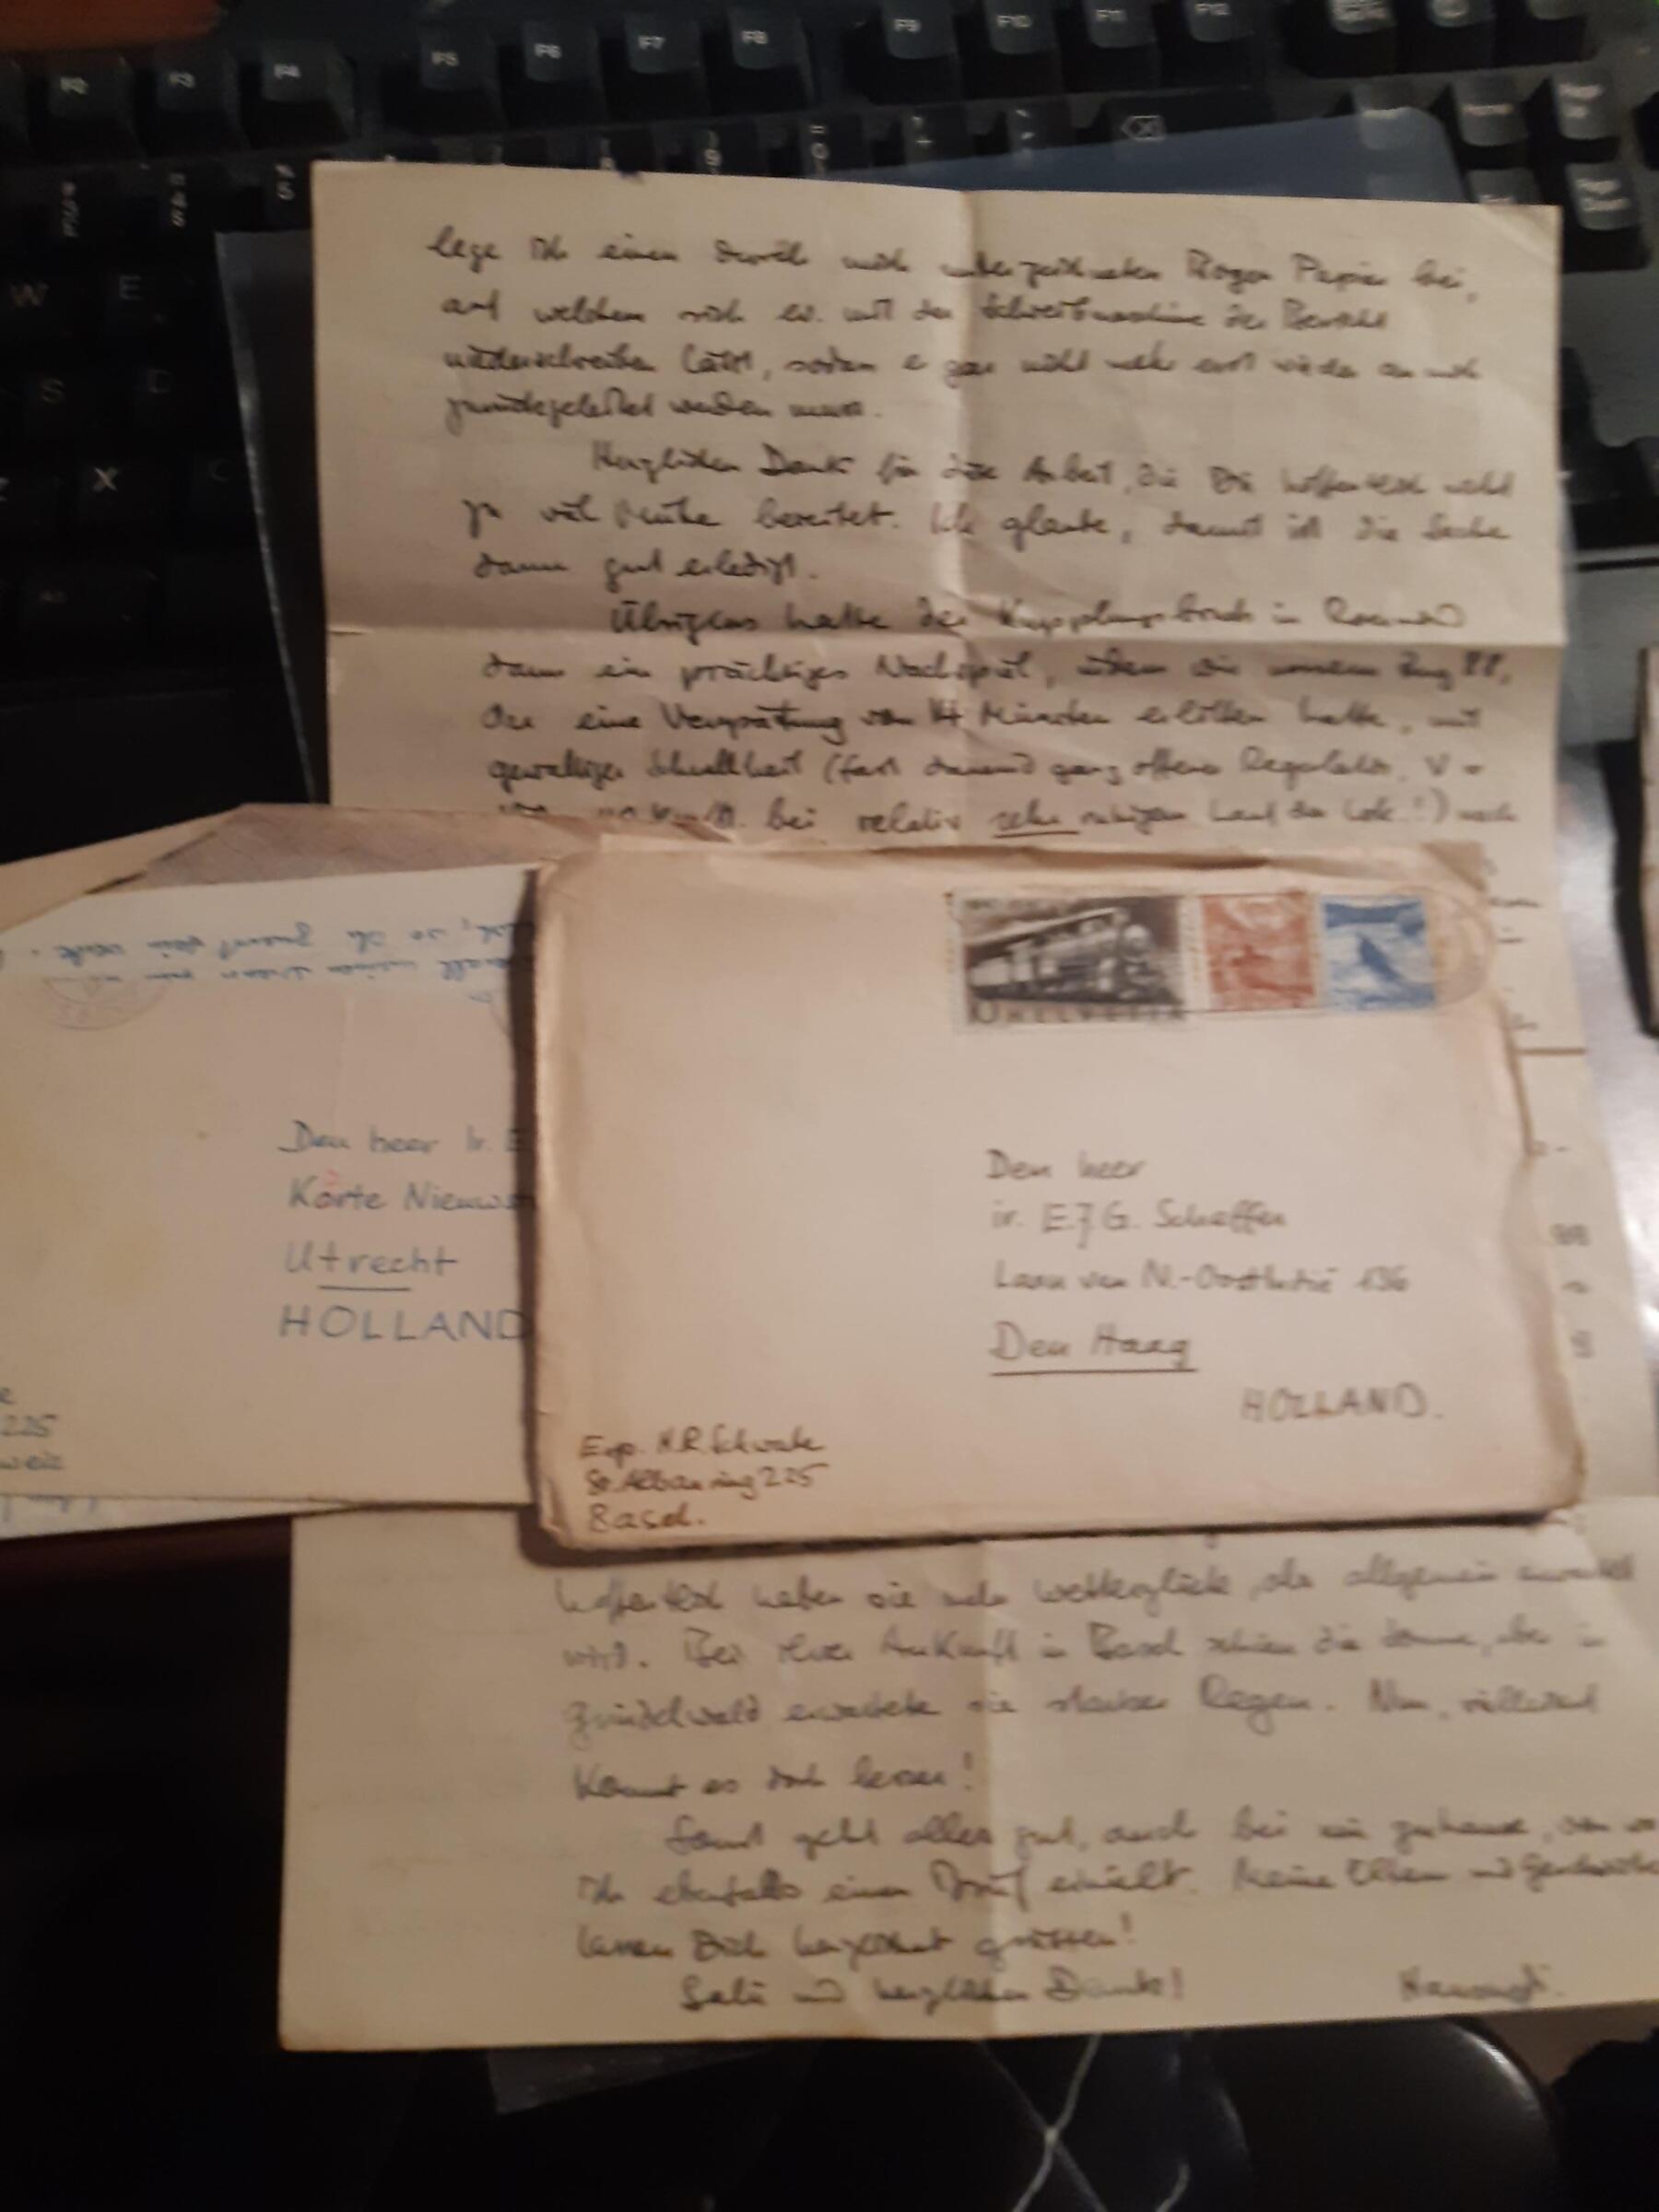 lege ich einen durch mich unterzeichneten Bogen Papier bei,
auf welchem sich ev. mit der Schreibmaschine der Bericht
niederschreiben lässt, sodass er gar nicht mehr erst wieder an mich
zurückgeleitet werden muss.
Herzlichen Dank für diese Arbeit, die Dir hoffentlich nicht
zu viel Mühe bereitet. Ich glaube, damit ist die Sache
dann gut erledigt.
Übrigens hatte der Kupplungsbruch in
dann ein prächtiges Nachspiel, indem wir unsern Zug 88,
der eine Verspätung von 14 Minuten erlitten hatte, mit
gewaltiger Schnellheit (fast dauernd ganz offener Regulator, V =
km/h. bei relativ sehr ruhigem Lauf der Lok.!) nach
HELVETIA
Den heer Ir. E
Korte Nieuws
Utrecht
HOLLAND
225
weiz
Den heer
ir. E.J.G. Scheffer
Laan van N.-Oostindië 136
Den Haag
HOLLAND.
Exp. H.R. Schwabe
St. Albanring 225
Basel.
hoffentlich haben sie mehr Wetterglück, als allgemein erwartet
wird. Bei ihrer Ankunft in Basel schien die Sonne, aber in
Grindelwald erwartete sie starker Regen. Nun, vielleicht
kommt es doch besser!
Sonst geht alles gut, auch bei mir zuhause, von wo
ich ebenfalls einen Brief erhielt. Meine Eltern und Geschwister
lassen Dich herzlichst grüssen!
Salü und herzlichen Dank!
F2 F3 F4 F5 F6 F7 F8 F9 F10 F11 F12
W E
S D
X C